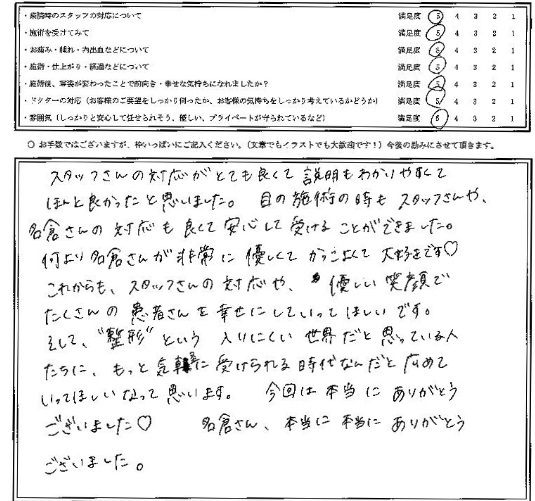 ・来院時のスタッフの対応について 満足度 5 4 3 2 1
・施術を受けてみて 満足度 5 4 3 2 1
・お痛み・腫れ・内出血などについて 満足度 5 4 3 2 1
・施術・仕上がり・経過などについて 満足度 5 4 3 2 1
・施術後、容姿が変わったことで前向き・幸せな気持ちになれましたか？ 満足度 5 4 3 2 1
・ドクターの対応（お客様のご要望をしっかり伺ったか、お客様の気持ちをしっかり考えているかどうか） 満足度 5 4 3 2 1
・雰囲気（しっかりと安心して任せられそう、優しい、プライベートが守られているなど） 満足度 5 4 3 2 1
○ お手数ではございますが、枠いっぱいにご記入ください。（文章でもイラストでも大歓迎です！）今後の励みにさせて頂きます。
スタッフさんの対応がとても良くて説明もわかりやすくて
ほんと良かったと思いました。目の施術の時もスタッフさんや、
名倉さんの対応も良くて安心して受けることができました。
何より名倉さんが非常に優しくてかっこよくて大好きです♡
これからも、スタッフさんの対応や、優しい笑顔で
たくさんの患者さんを幸せにしていってほしいです。
そして、"整形"という入りにくい世界だと思っている人
たちに、もっと気軽に受けられる時代なんだと広めて
いってほしいなって思います。 今回は本当にありがとう
ございました♡ 名倉さん、本当に本当にありがとう
ございました。